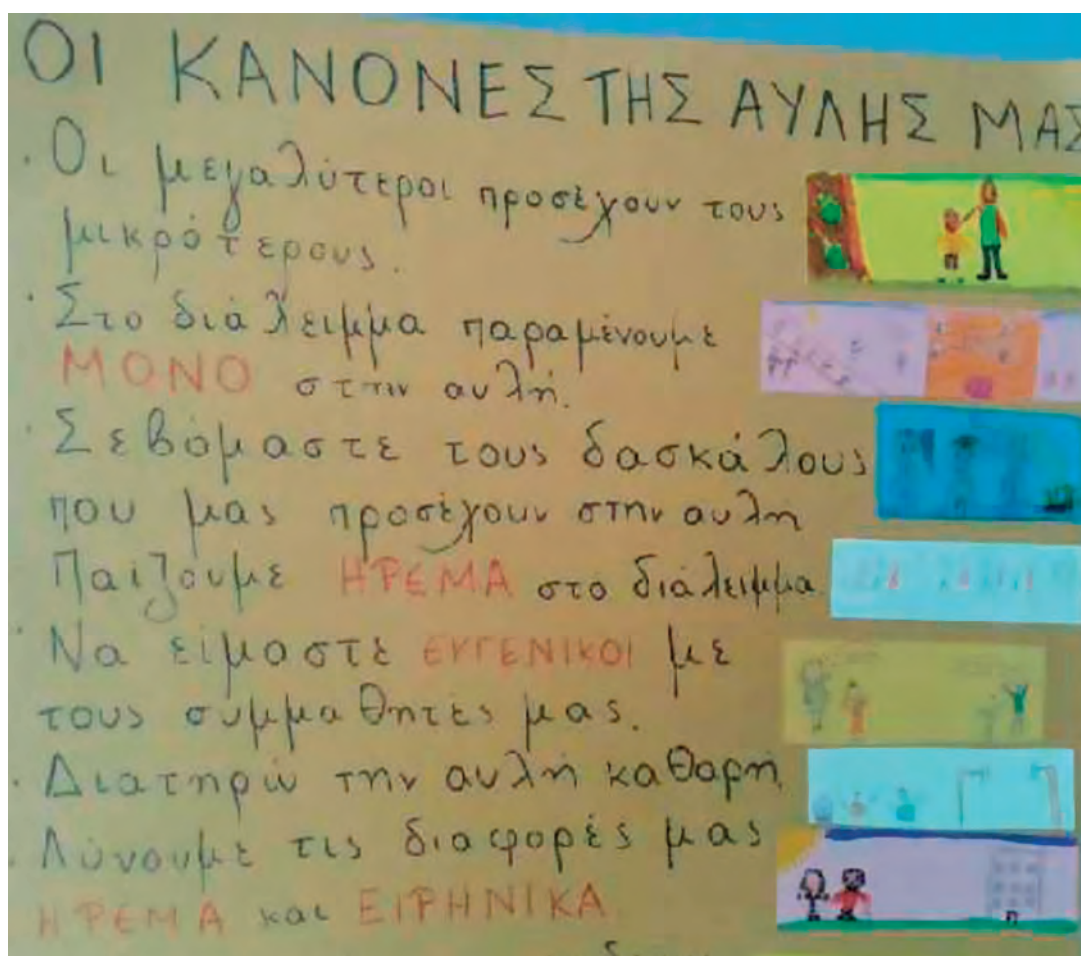 ΟΙ ΚΑΝΟΝΕΣ ΤΗΣ ΑΥΛΗΣ ΜΑΣ
· Οι μεγαλύτεροι προσέχουν τους
μικρότερους.
· Στο διάλειμμα παραμένουμε
ΜΟΝΟ στην αυλή.
· Σεβόμαστε τους δασκάλους
που μας προσέχουν στην αυλή
Παίζουμε ΗΡΕΜΑ στο διάλειμμα.
· Να είμαστε ΕΥΓΕΝΙΚΟΙ με
τους συμμαθητές μας.
· Διατηρώ την αυλή καθαρή.
· Λύνουμε τις διαφορές μας
ΗΡΕΜΑ και ΕΙΡΗΝΙΚΑ.